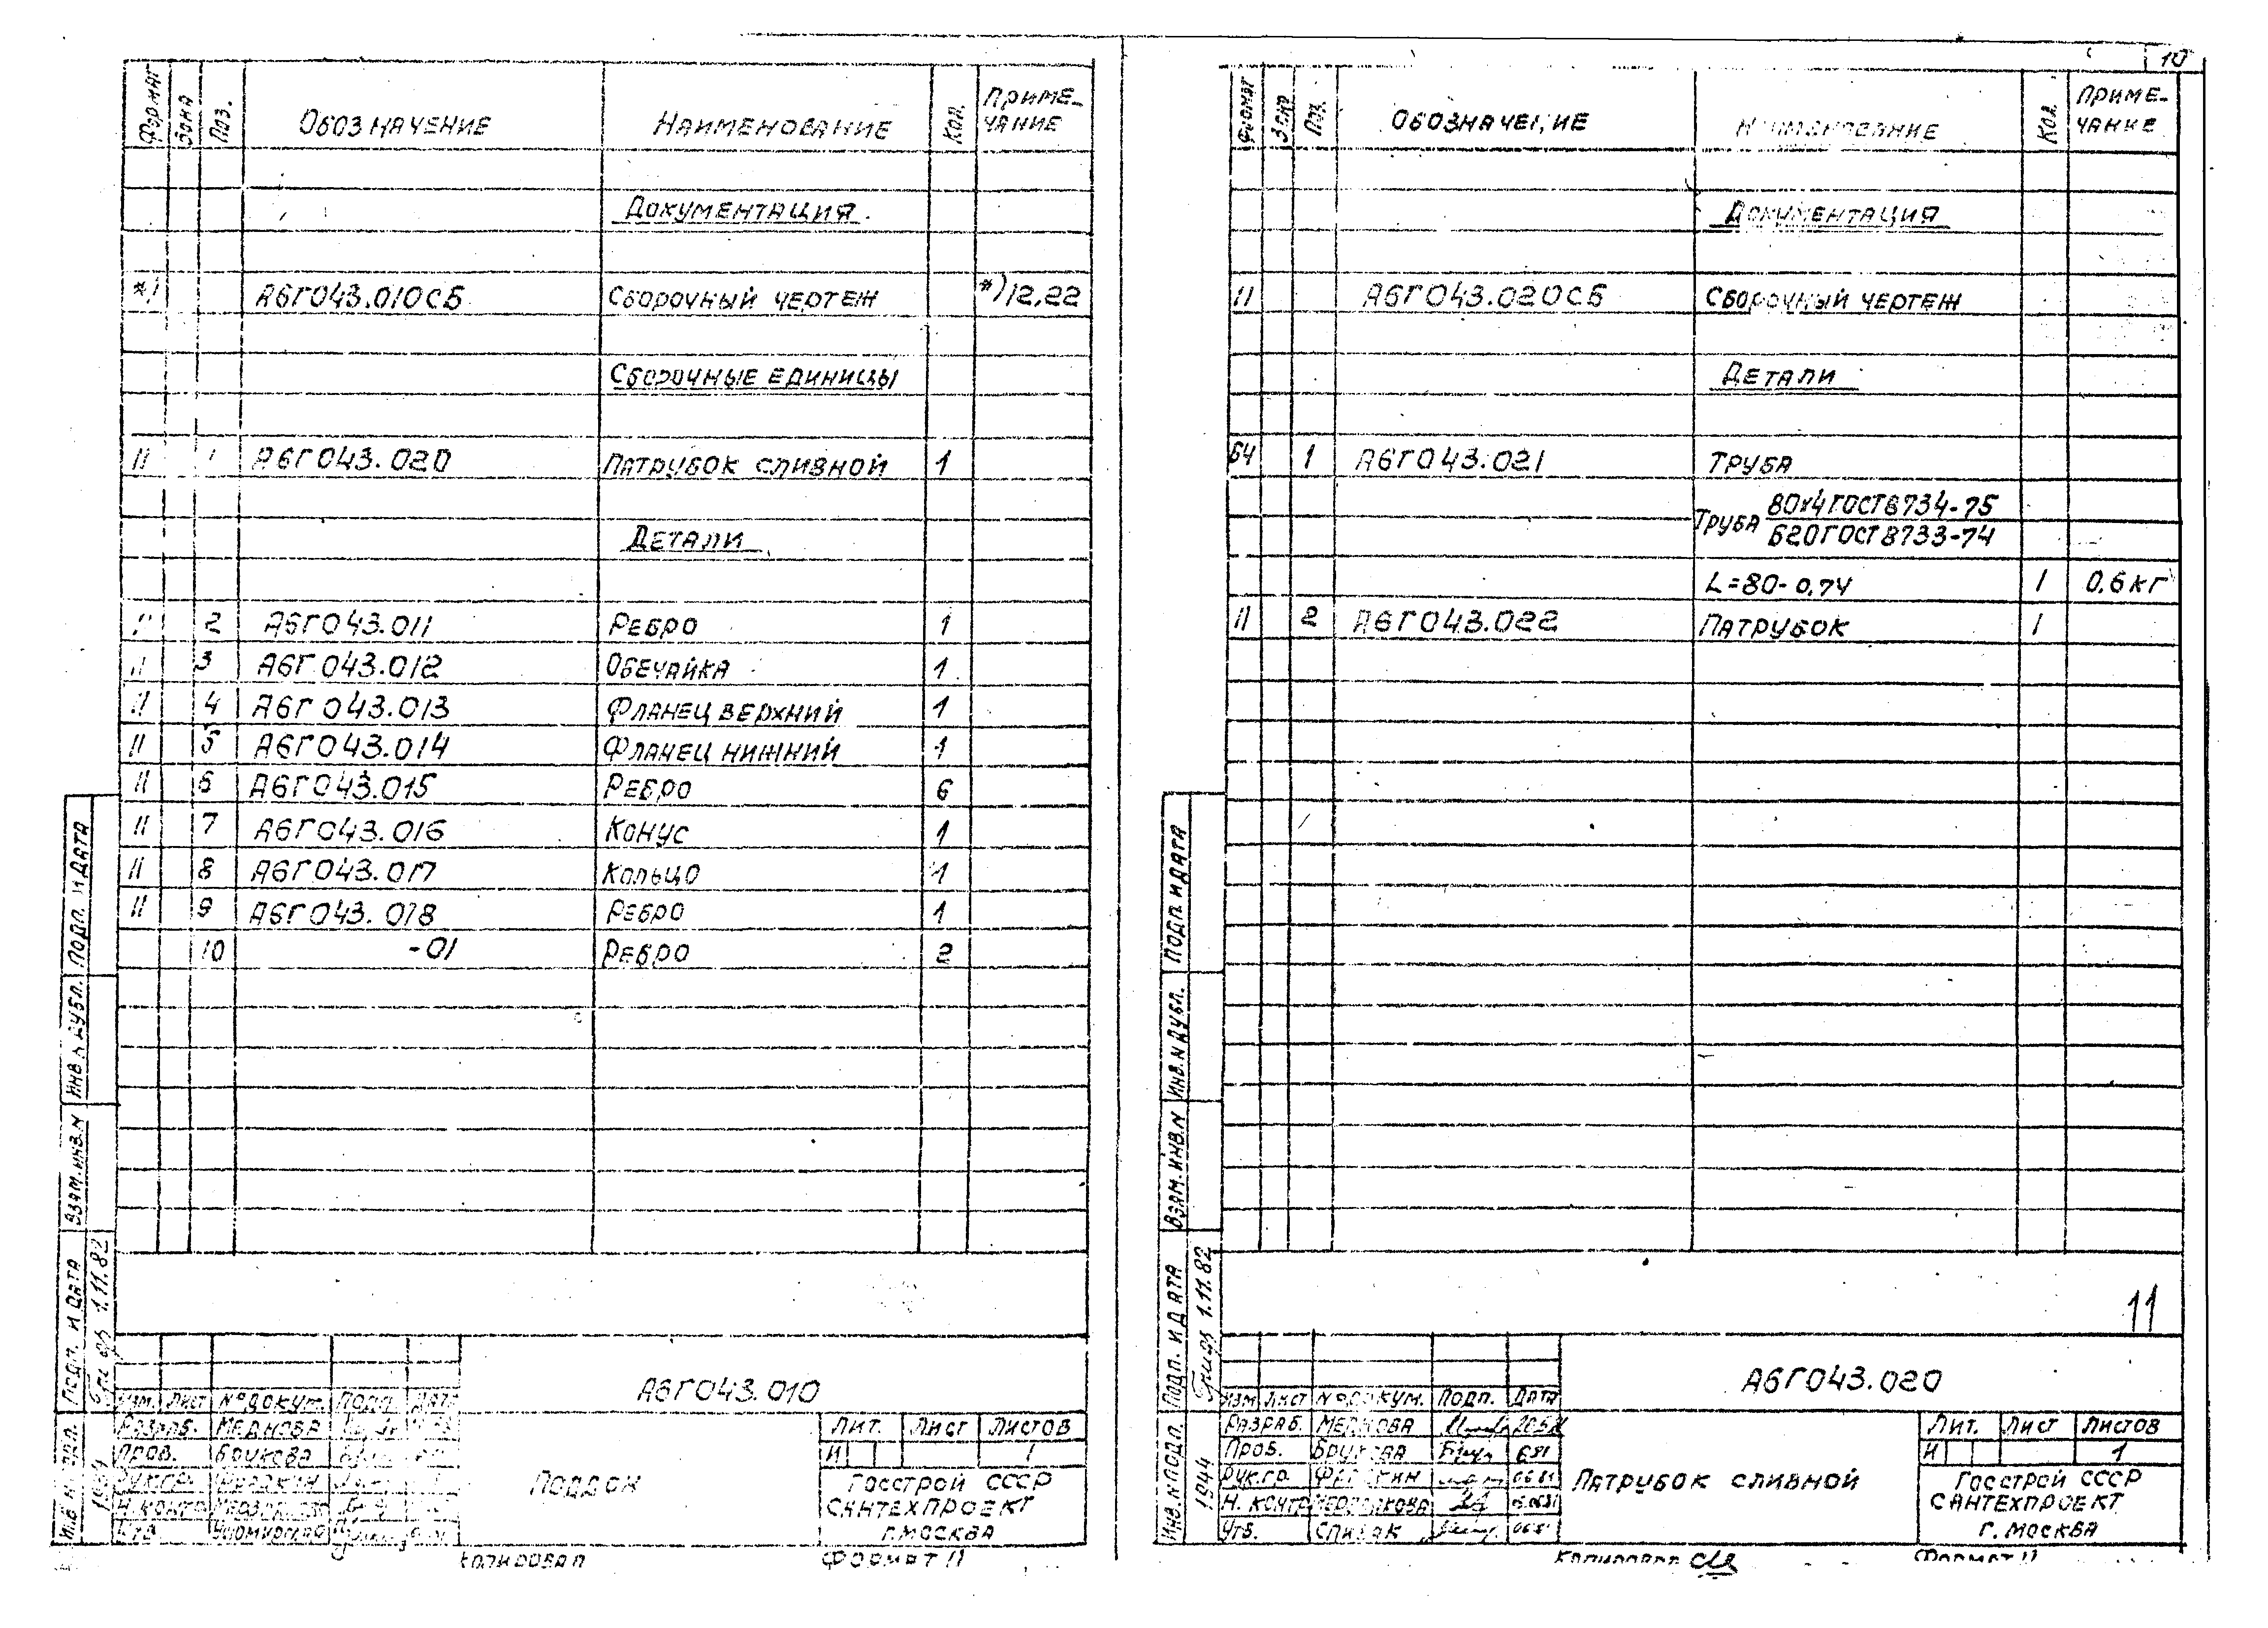 Формат Зона Поз. Обозначение Наименование Кол. Приме-чание
Документация
*) А6Г043.010СБ Сборочный чертеж *)12,22
Сборочные единицы
11 1 А6Г043.020 Патрубок сливной 1
Детали
11 2 А6Г043.011 Ребро 1
11 3 А6Г043.012 Обечайка 1
11 4 А6Г043.013 Фланец верхний 1
11 5 А6Г043.014 Фланец нижний 1
11 6 А6Г043.015 Ребро 6
11 7 А6Г043.016 Конус 1
11 8 А6Г043.017 Кольцо 1
11 9 А6Г043.018 Ребро 1
10 -01 Ребро 2
Подп. и дата
Инв.№ дубл.
Взам.инв.№
Подп. и дата 1.11.82
Инв.№ подл.
А6Г043.010
Изм. Лист №докум. Подп. Дата
Разраб. Меднова
Пров. Брукова
Рук.гр.
Н.контр.
Утв.
Поддон
Лит. Лист Листов
И 1
Госстрой СССР
Сантехпроект
г.Москва
Копировал Формат 11
10
Формат Зона Поз. Обозначение Наименование Кол. Приме-чание
Документация
11 А6Г043.020СБ Сборочный чертеж
Детали
Б4 1 А6Г043.021 Труба
Труба 80х4ГОСТ8734-75
Б20ГОСТ8733-74
L=80-0,74 1 0,6кг
11 2 А6Г043.022 Патрубок 1
Подп. и дата
Инв.№ дубл.
Взам.инв.№
Подп. и дата 1.11.82
Инв.№ подл. 1944
11
А6Г043.020
Изм Лист №докум. Подп. Дата
Разраб. Меднова
Пров. Брукова 6.81
Рук.гр. 06.81
Н.контр.
Утв. Спивак 06.81
Патрубок сливной
Лит. Лист Листов
И 1
Госстрой СССР
Сантехпроект
г. Москва
Копировал Формат 11